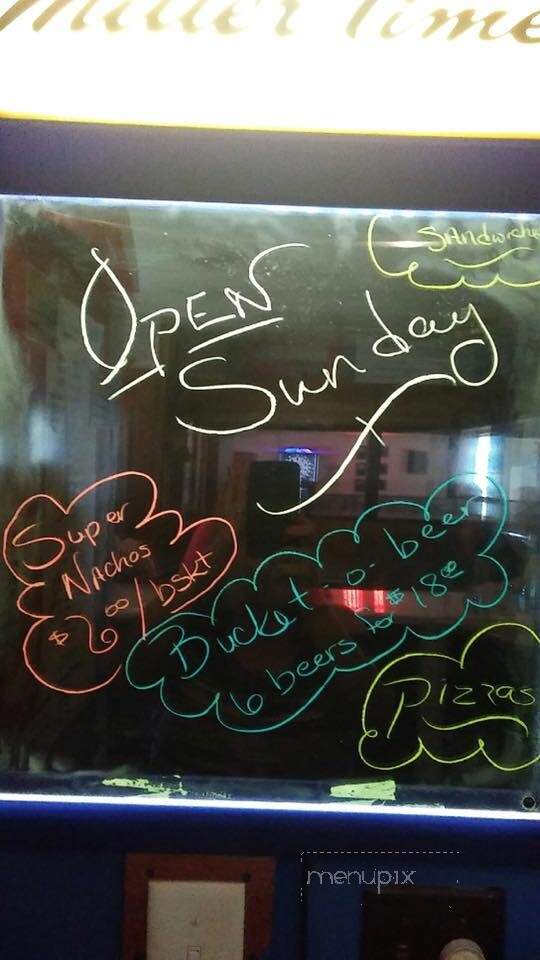 Miller Time
Sandwiches
OPEN
Sunday
Super
Nachos
$6.00/bskt
Bucket-o-beer
6 beers for $18.00
Pizzas
menupix